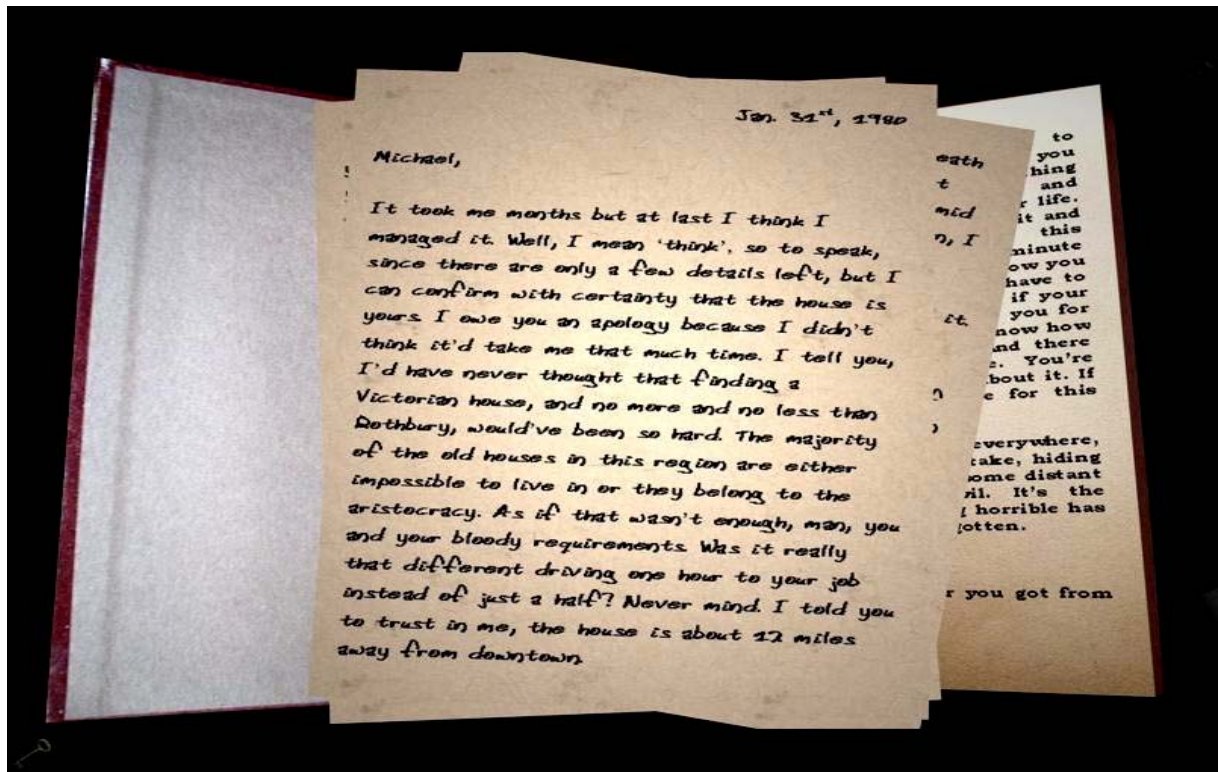 Jan. 31st, 1980
Michael,
It took me months but at last I think I
managed it. Well, I mean 'think', so to speak,
since there are only a few details left, but I
can confirm with certainty that the house is
yours. I owe you an apology because I didn't
think it'd take me that much time. I tell you,
I'd have never thought that finding a
Victorian house, and no more and no less than
Rothbury, would've been so hard. The majority
of the old houses in this region are either
impossible to live in or they belong to the
aristocracy. As if that wasn't enough, man, you
and your bloody requirements. Was it really
that different driving one hour to your job
instead of just a half? Never mind. I told you
to trust in me, the house is about 12 miles
away from downtown.
eath
t
mid
n, I
it.
to
you
hing
and
r life.
it and
this
minute
ow you
have to
if your
you for
now how
nd there
e. You're
bout it. If
e for this
everywhere,
take, hiding
ome distant
vil. It's the
g horrible has
gotten.
r you got from